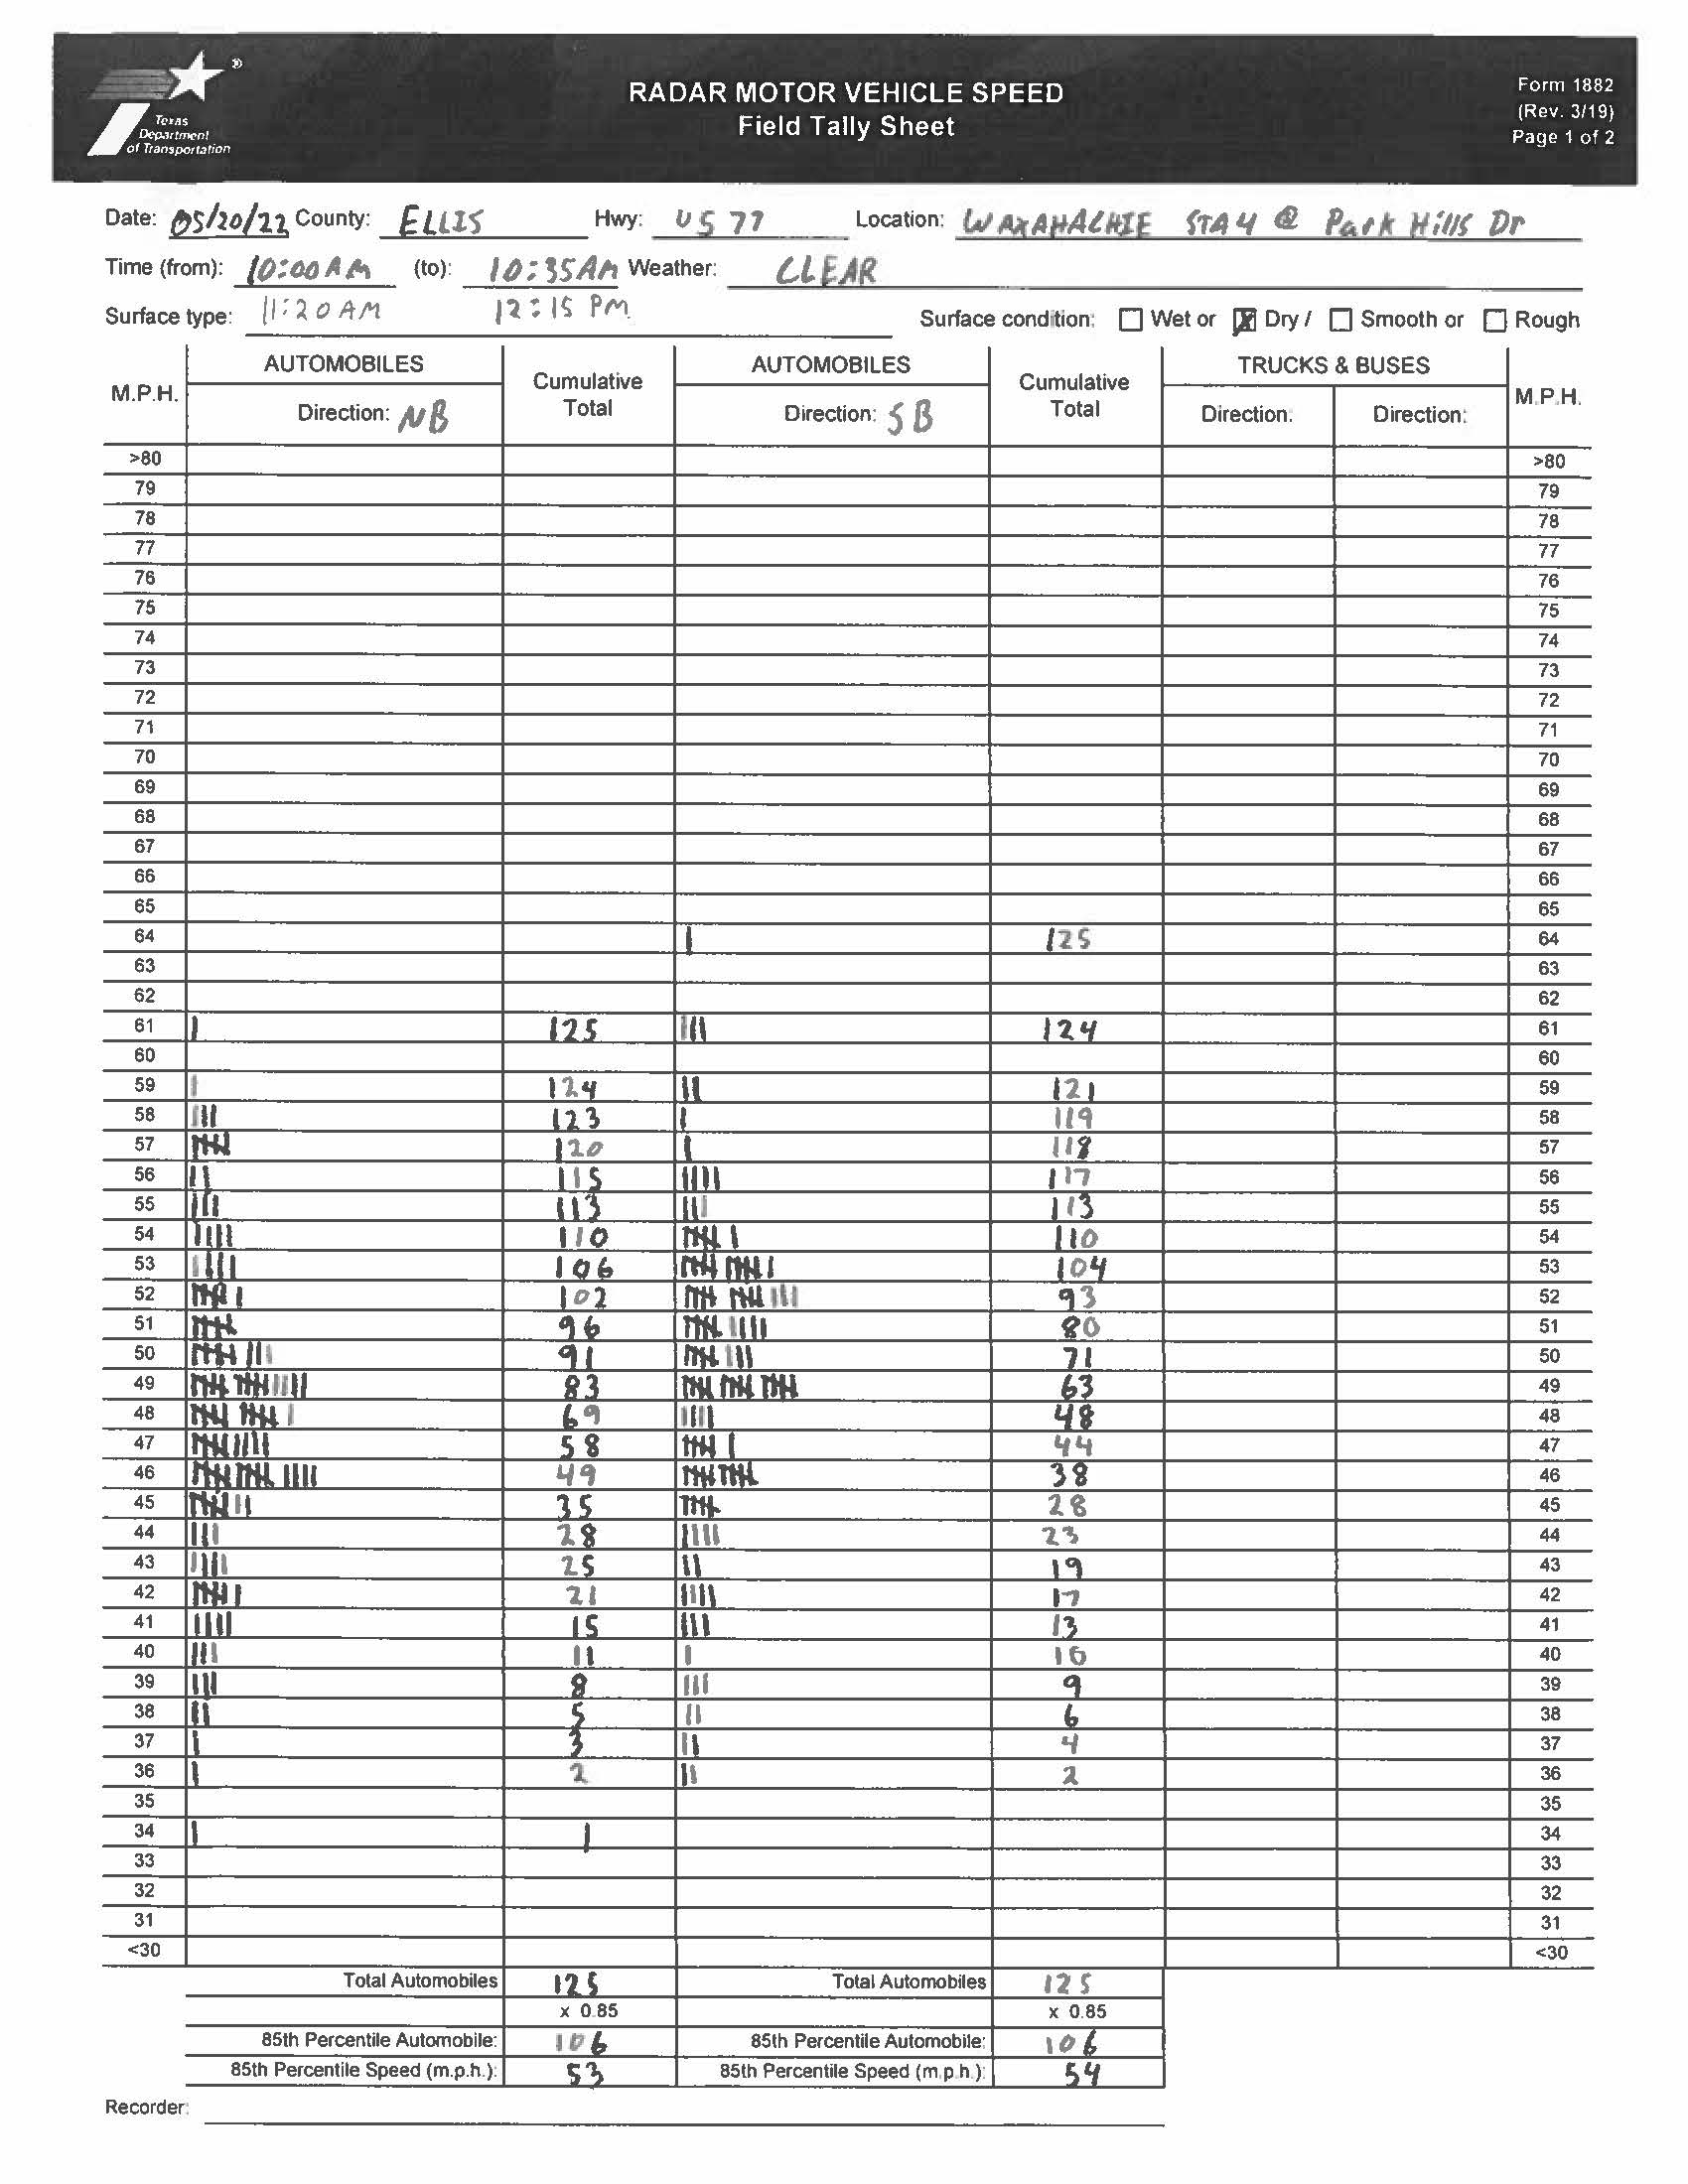 Texas
Department
of Transportation
®
RADAR MOTOR VEHICLE SPEED
Field Tally Sheet
Form 1882
(Rev. 3/19)
Page 1 of 2
Date: 05/20/22 County: ELLIS Hwy: US 77 Location: WAXAHACHIE STA 4 @ Park Hills Dr
Time (from): 10:00 AM (to): 10:35 AM Weather: CLEAR
Surface type: 11:20 AM 12:15 PM Surface condition: Wet or X Dry / Smooth or Rough
M.P.H. AUTOMOBILES Cumulative Total AUTOMOBILES Cumulative Total TRUCKS & BUSES M.P.H.
Direction: NB Direction: SB Direction: Direction:
>80 >80
79 79
78 78
77 77
76 76
75 75
74 74
73 73
72 72
71 71
70 70
69 69
68 68
67 67
66 66
65 65
64 | 125 64
63 63
62 62
61 | 125 ||| 124 61
60 60
59 | 124 || 121 59
58 ||| 123 | 119 58
57 |||| 120 | 118 57
56 || 115 |||| 117 56
55 ||| 113 ||| 113 55
54 |||| 110 |||| | 110 54
53 |||| 106 |||| |||| | 104 53
52 |||| | 102 |||| |||| ||| 93 52
51 |||| 96 |||| |||| 80 51
50 |||| ||| 91 |||| ||| 71 50
49 |||| |||| |||| 83 |||| |||| |||| 63 49
48 |||| |||| | 69 |||| 48 48
47 |||| |||| 58 |||| | 44 47
46 |||| |||| |||| 49 |||| |||| 38 46
45 |||| || 35 |||| 28 45
44 ||| 28 |||| 23 44
43 |||| 25 || 19 43
42 |||| | 21 |||| 17 42
41 |||| 15 ||| 13 41
40 ||| 11 | 10 40
39 ||| 8 ||| 9 39
38 || 5 || 6 38
37 | 3 || 4 37
36 | 2 || 2 36
35 35
34 | 1 34
33 33
32 32
31 31
<30 <30
Total Automobiles 125 Total Automobiles 125
x 0.85 x 0.85
85th Percentile Automobile: 106 85th Percentile Automobile: 106
85th Percentile Speed (m.p.h.): 53 85th Percentile Speed (m.p.h.): 54
Recorder: